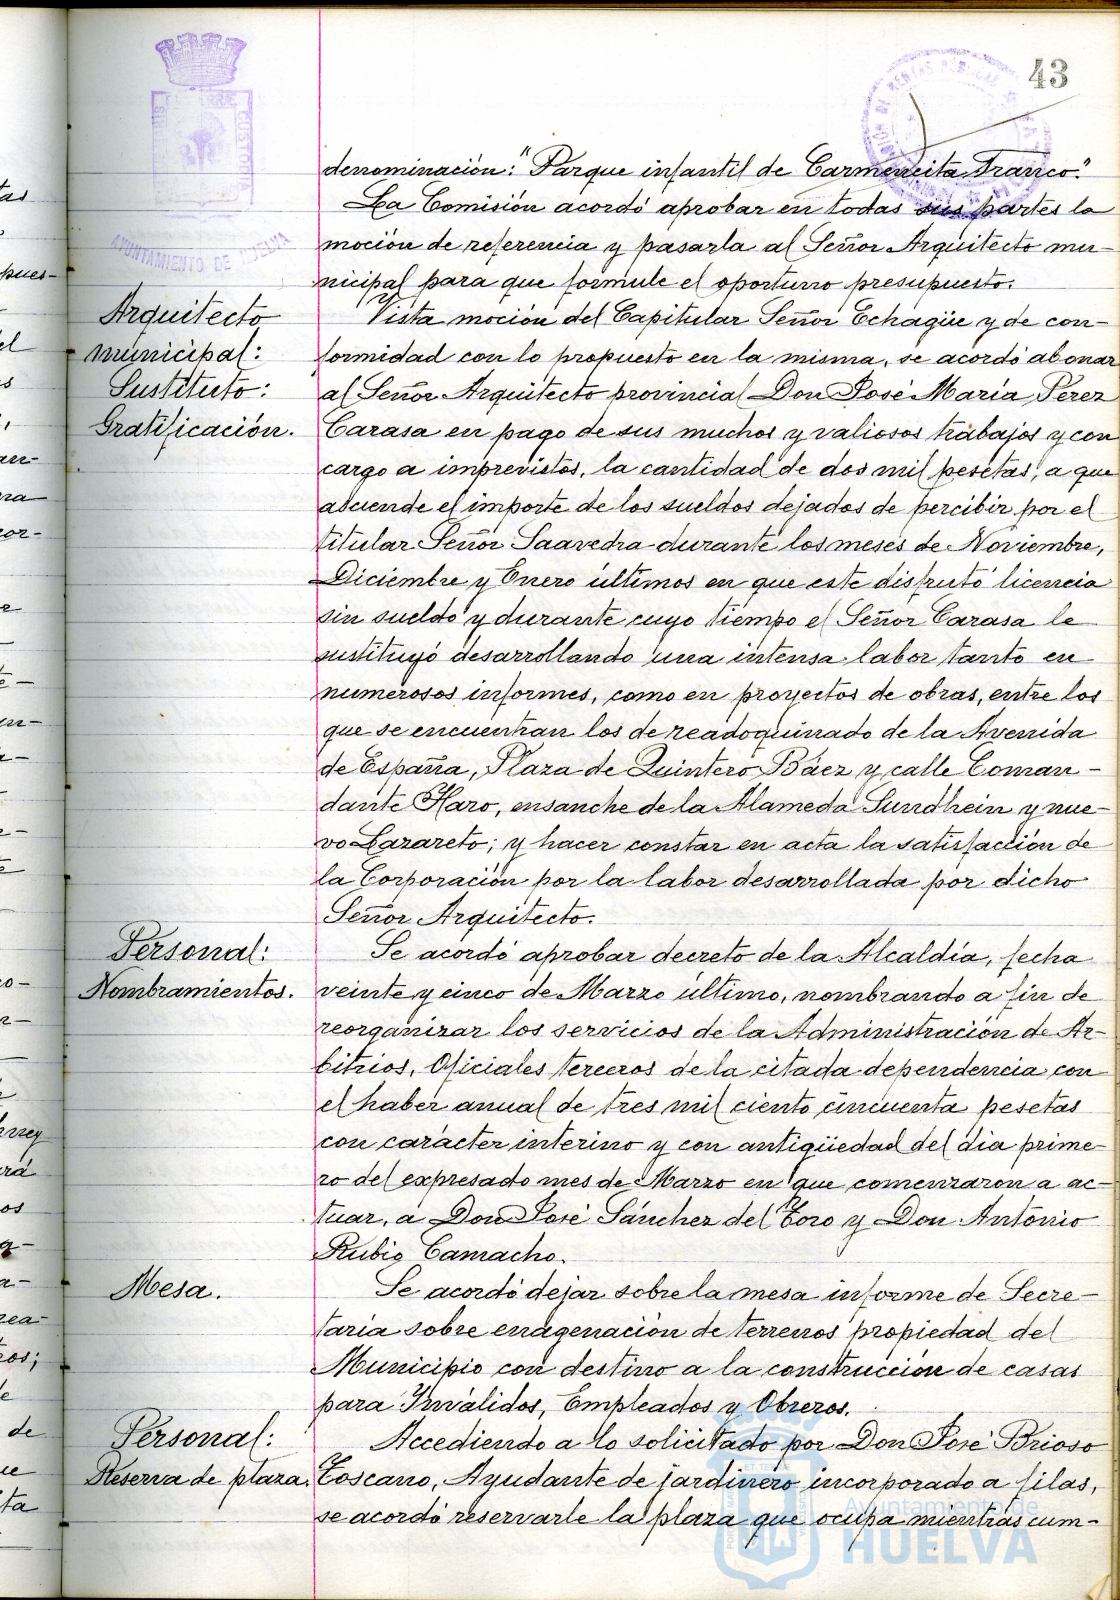 43
denominación: "Parque infantil de Carmencita Franco."
La Comisión acordó aprobar en todas sus partes la
moción de referencia y pasarla al Señor Arquitecto mu-
nicipal para que formule el oportuno presupuesto.
AYUNTAMIENTO DE HUELVA
Arquitecto
municipal:
Sustituto:
Gratificación.
Vista moción del Capitular Señor Echagüe y de con-
formidad con lo propuesto en la misma, se acordó abonar
al Señor Arquitecto provincial Don José María Pérez
Carasa en pago de sus muchos y valiosos trabajos y con
cargo a imprevistos, la cantidad de dos mil pesetas, a que
asciende el importe de los sueldos dejados de percibir por el
titular Señor Saavedra durante los meses de Noviembre,
Diciembre y Enero últimos en que este disfrutó licencia
sin sueldo y durante cuyo tiempo el Señor Carasa le
sustituyó desarrollando una intensa labor tanto en
numerosos informes, como en proyectos de obras, entre los
que se encuentran los de readoquinado de la Avenida
de España, Plaza de Quintero Báez y calle Coman-
dante Haro, ensanche de la Alameda Sundhein y nue-
vo Lazareto; y hacer constar en acta la satisfacción de
la Corporación por la labor desarrollada por dicho
Señor Arquitecto.
Personal:
Nombramientos.
Se acordó aprobar decreto de la Alcaldía, fecha
veinte y cinco de Marzo último, nombrando a fin de
reorganizar los servicios de la Administración de Ar-
bitrios, Oficiales terceros de la citada dependencia con
el haber anual de tres mil ciento cincuenta pesetas
con carácter interino y con antigüedad del dia prime-
ro del expresado mes de Marzo en que comenzaron a ac-
tuar, a Don José Sánchez del Toro y Don Antonio
Rubio Camacho.
Mesa.
Se acordó dejar sobre la mesa informe de Secre-
taría sobre enagenación de terrenos propiedad del
Municipio con destino a la construcción de casas
para Inválidos, Empleados y Obreros.
Personal:
Reserva de plaza.
Accediendo a lo solicitado por Don José Brioso
Toscano, Ayudante de jardinero incorporado a filas,
se acordó reservarle la plaza que ocupa mientras cum-
Ayuntamiento de
HUELVA